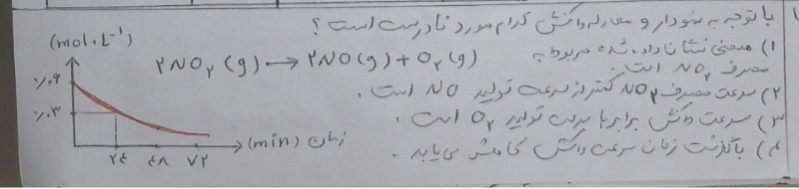 با توجه به نمودار و معادله واکنش کدام مورد نادرست است؟
۱) منحنی نشان داده شده مربوط به
مصرف NO₂ است.
۲) سرعت مصرف NO₂ کمتر از سرعت تولید NO است.
۳) سرعت واکنش برابر با سرعت تولید O₂ است.
۴) با گذشت زمان سرعت واکنش کاهش می یابد.
۲NO₂(g) → ۲NO(g) + O₂(g)
(mol·L⁻¹)
۰٫۰۳
۲۴ ۴۸ ۷۲
زمان (min)